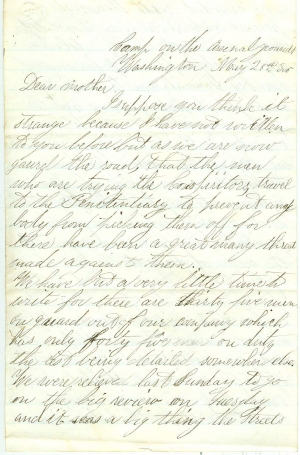 Camp on the Arsenal grounds
Washington May 28th 65
Dear Mother
I suppose you think it
strange because I have not written
to you before but as we are now
gaurd the road, that the men
who are trying the conspiritors travel
to the Penetentiary to prevent any
body from picking them off for
there have been a great many threats
made against them.
We have but a very little time to
write for there are thirty five men
on guard out of our company which
has only forty five men on duty
the rest being detailed somewhere else
We were relieved last Sunday to go
on the big review on Tuesday
and it was a big thing the streets